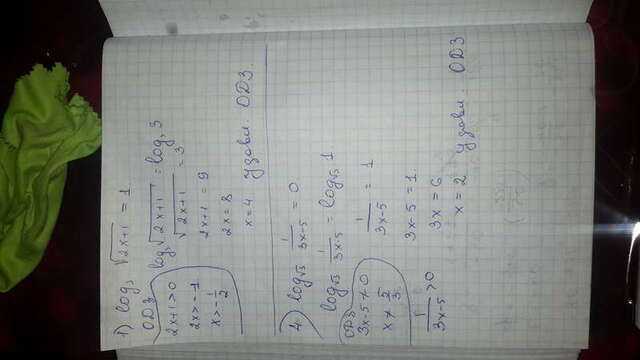 1) log₃ √(2x+1) = 1
ОДЗ
2x+1>0
2x>-1
x>-1/2
log₃ √(2x+1) = log₃ 3
√(2x+1) = 3
2x+1 = 9
2x = 8
x = 4 Удовл. ОДЗ
4) log√5 1/(3x-5) = 0
log√5 1/(3x-5) = log√5 1
ОДЗ
3x-5≠0
1/(3x-5) > 0
1/(3x-5) = 1
3x-5 = 1
3x = 6
x = 2 Удовл. ОДЗ